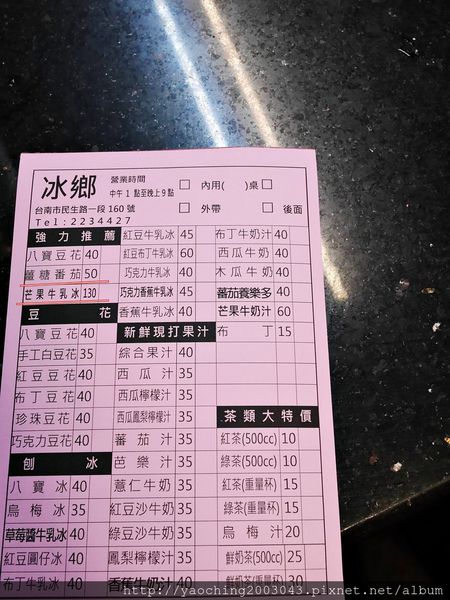 冰鄉 營業時間 中午1點至晚上9點 □ 內用( )桌 □
台南市民生路一段160號 □ 外帶 □ 後面
Tel:2234427
強力推薦
八寶豆花 40
薑糖番茄 50
芒果牛乳冰 130
豆花
八寶豆花 40
手工白豆花 35
紅豆豆花 40
布丁豆花 40
珍珠豆花 40
巧克力豆花 40
刨冰
八寶冰 40
烏梅冰 35
草莓醬牛乳冰 40
紅豆圓仔冰 40
布丁牛乳冰 40
紅豆牛乳冰 45
紅豆布丁牛乳冰 60
巧克力牛乳冰 40
巧克力香蕉牛乳冰 45
香蕉牛乳冰 40
新鮮現打果汁
綜合果汁 40
西瓜汁 35
西瓜檸檬汁 35
西瓜鳳梨檸檬汁 35
蕃茄汁 35
芭樂汁 35
薏仁牛奶 35
紅豆沙牛奶 35
綠豆沙牛奶 35
鳳梨檸檬汁 35
香蕉牛奶汁 40
布丁牛奶汁 40
西瓜牛奶 40
木瓜牛奶 40
蕃茄養樂多 40
芒果牛奶汁 60
布丁 15
茶類大特價
紅茶(500cc) 10
綠茶(500cc) 10
紅茶(重量杯) 15
綠茶(重量杯) 15
烏梅汁 20
鮮奶茶(500cc) 25
鮮奶茶(重量杯) 30
http://yaoching2003043.pixnet.net/album